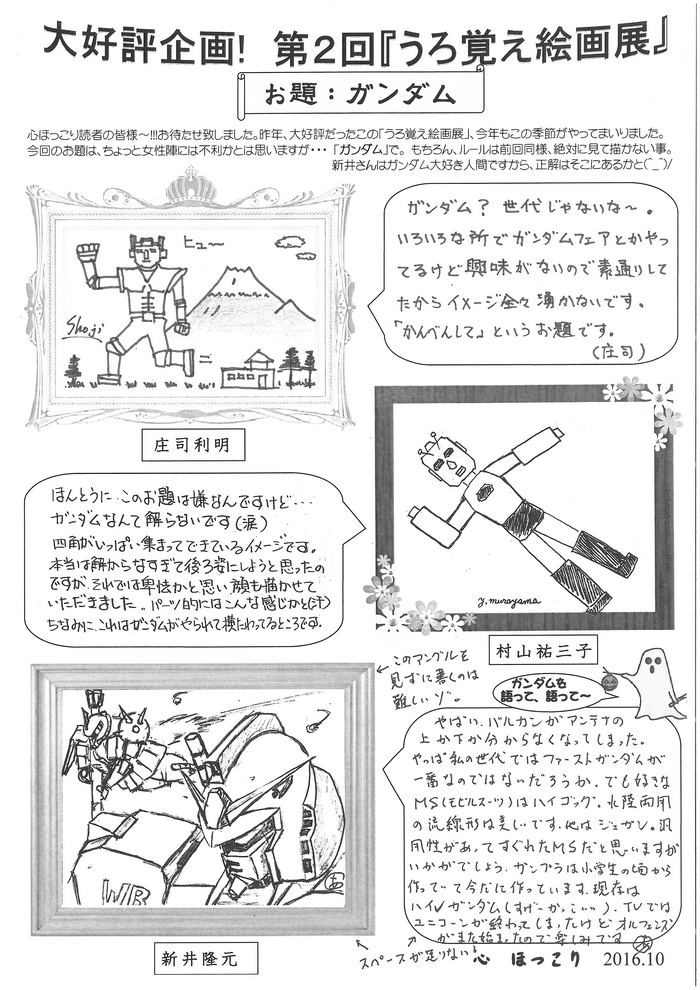 大好評企画! 第2回『うろ覚え絵画展』
お題：ガンダム
心ほっこり読者の皆様～!!!お待たせ致しました。昨年、大好評だったこの「うろ覚え絵画展」、今年もこの季節がやってまいりました。
今回のお題は、ちょっと女性陣には不利かとは思いますが・・・「ガンダム」で。もちろん、ルールは前回同様、絶対に見て描かない事。
新井さんはガンダム大好き人間ですから、正解はそこにあるかと(^_^)/
ヒュ～
Shoji
ガンダム？世代じゃないな～。
いろいろな所でガンダムフェアとかやっ
てるけど興味がないので素通りして
たからイメージ全々湧かないです。
「かんべんして」というお題です。
(庄司)
庄司利明
ほんとうに、このお題は嫌なんですけど・・・
ガンダムなんて解らないです(涙)
四角がいっぱい集まってできているイメージです。
本当は解からなすぎて後ろ姿にしようと思ったの
ですが、それでは卑怯かと思い顔も描かせて
いただきました。パーツ的にはこんな感じかと(汗)
ちなみに、これはガンダムがやられて横たわってるところです。
y.murayama
村山祐三子
このアングルを
見ずに書くのは
難しいゾ。
ガンダムを
語って、語って～
やばい、バルカンがアンテナの
上か下か分からなくなってしまった。
やっぱ私の世代ではファーストガンダムが
一番なのではないだろうか。でも好きな
MS(モビルスーツ)はハイゴッグ。水陸両用
の流線形は美しいです。他はジェガン。汎
用性があってすぐれたMSだと思いますが
いかがでしょう。ガンプラは小学生の頃から
作っていて今だに作っています。現在は
ハイνガンダム(すげーかっこいい)。TVでは
ユニコーンが終わってしまったけどオルフェンズ
がまた始まったので楽しみです
WB
新井隆元
スペースが足りない!
心 ほっこり 2016.10